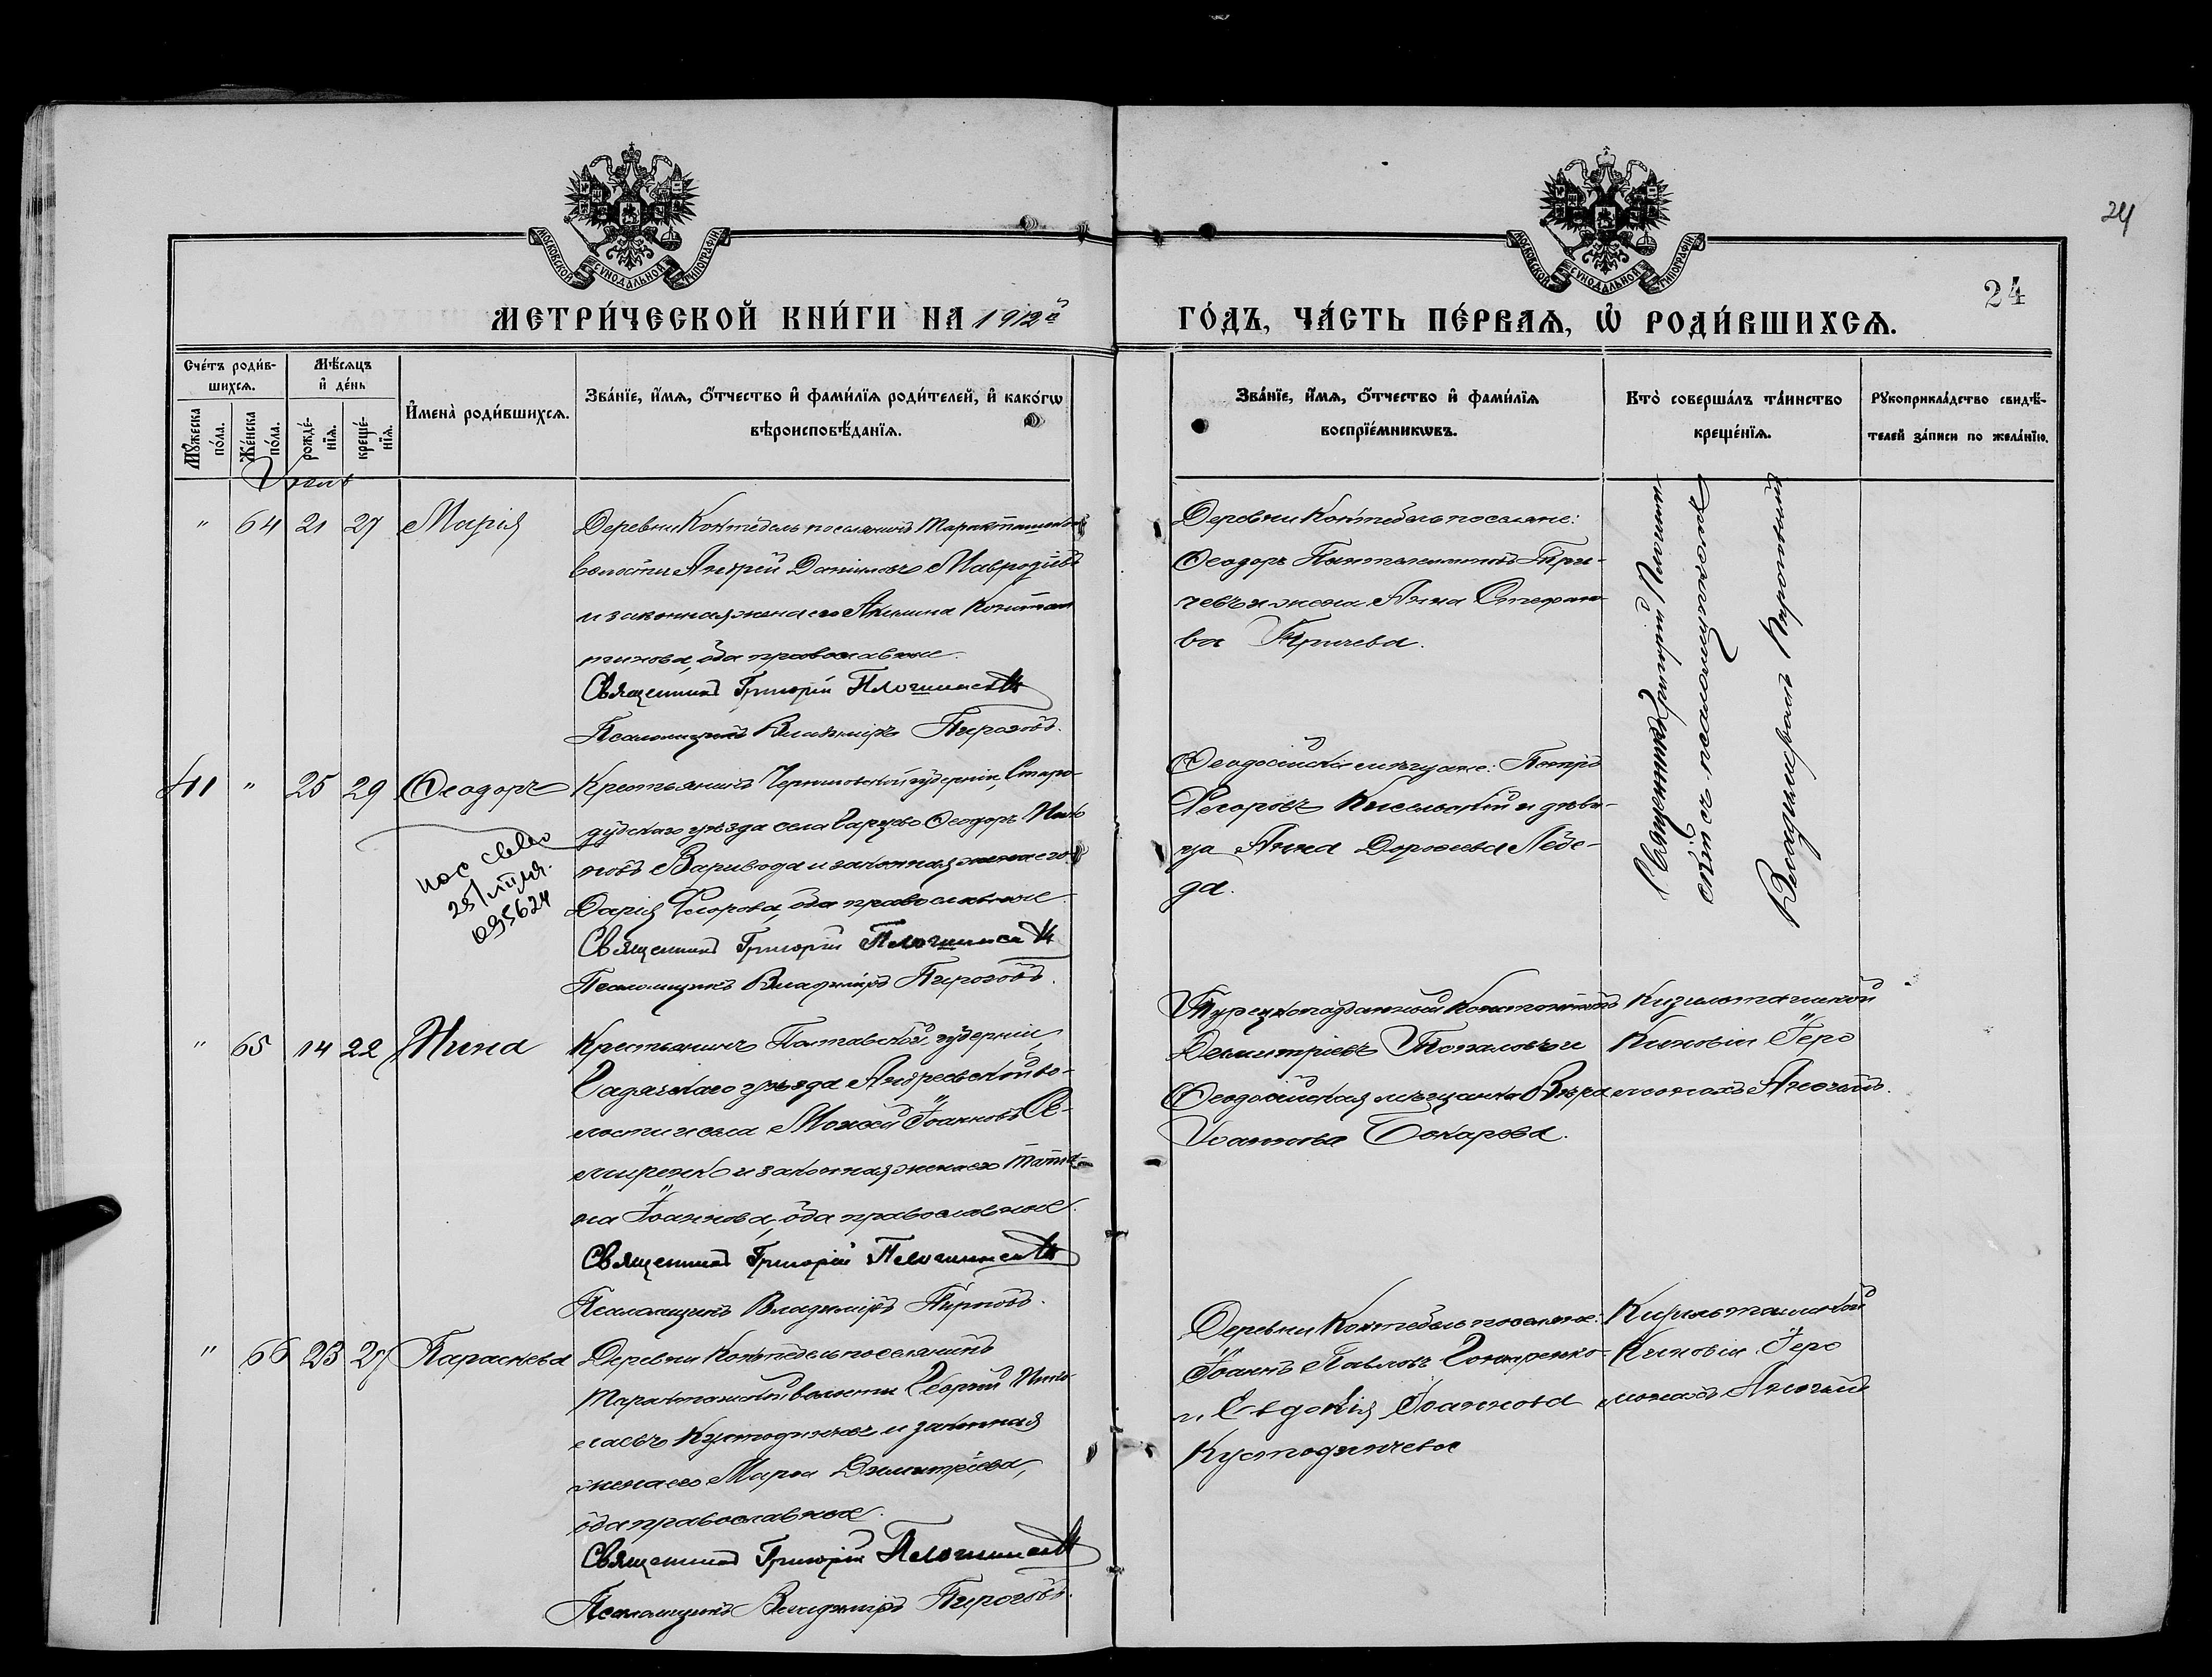 24
МОСКОВСКОЙ СѴНОДАЛЬНОЙ ТИПОГРАФІИ
МОСКОВСКОЙ СѴНОДАЛЬНОЙ ТИПОГРАФІИ
24
МЕТРИ́ЧЕСКОЙ КНИ́ГИ НА 1912й
ГО́ДЪ, ЧА́СТЬ ПЕ́РВАѦ, Ѡ РОДИ́ВШИХСѦ.
Сче́тъ роди́в-
шихсѧ.
Мѣ́сѧцъ
и҆ де́нь
Мꙋ́жеска
по́ла.
Же́нска
по́ла.
рожде́-
нїѧ.
креще́-
нїѧ.
И҆мена̀ роди́вшихсѧ.
Зва́нїе, и҆́мѧ, ѻ҆́тчество и҆ фами́лїѧ роди́телей, и҆ како́гѡ
вѣроисповѣ́данїѧ.
Зва́нїе, и҆́мѧ, ѻ҆́тчество и҆ фами́лїѧ
воспрїе́мникѡвъ.
Кто̀ соверша́лъ та́инство
креще́нїѧ.
Рꙋкоприкла́дство свидѣ́-
телей за́писи по жела́нїю.
" 64 21 27 Марія
Деревни Коктебель поселянинъ Таракташской
волости Андрей Даніиловъ Мавродіевъ
и законная жена его Акилина Констан
тинова, оба православные.
Священникъ Григорій
Псаломщикъ Владиміръ Пироговъ.
Деревни Коктебель поселяне:
Ѳеодоръ Пантелеимоновъ
и жена Анна Стефано-
ва
Священникъ Григорій
съ псаломщикомъ
Владиміромъ Пироговымъ
41 " 25 29 Ѳеодоръ
Крестьянинъ Черниговской губерніи, Старо-
дубскаго уѣзда села Гарцево Ѳеодоръ
Варивода и законная жена его
Дарія Егорова, оба православные.
Священникъ Григорій
Псаломщикъ Владиміръ Пироговъ.
25/
095624
Ѳеодосійскіе мѣщане: Петръ
Егоровъ Кисельскій и дѣви-
ца Анна Дороѳеева Лебе-
да.
" 65 14 22 Нина
Крестьянинъ Полтавской губерніи,
Гадячскаго уѣзда Андреевской во-
лости и села Моисей Іоанновъ Се-
миренко и законная жена его Татіа-
на Іоаннова, оба православные.
Священникъ Григорій
Псаломщикъ Владиміръ Пироговъ.
Турецкоподданный Константинъ
Димитріевъ Топаловъ и
Ѳеодосійская мѣщанка Вѣра
Іоаннова Бокарева.
Кизильташской
Киновіи Іеро
монахъ
" 66 23 29 Параскева
Деревни Коктебель поселянинъ
Таракташской волости Георгій Нико
лаевъ и законная
жена его Марія Димитріева,
оба православные.
Священникъ Григорій
Псаломщикъ Владиміръ Пироговъ.
Деревни Коктебель поселяне:
Іоаннъ Павловъ Гончаренко
и Евдокія Іоаннова
Кустодинчева
Кизильташской
Киновіи Іеро
монахъ